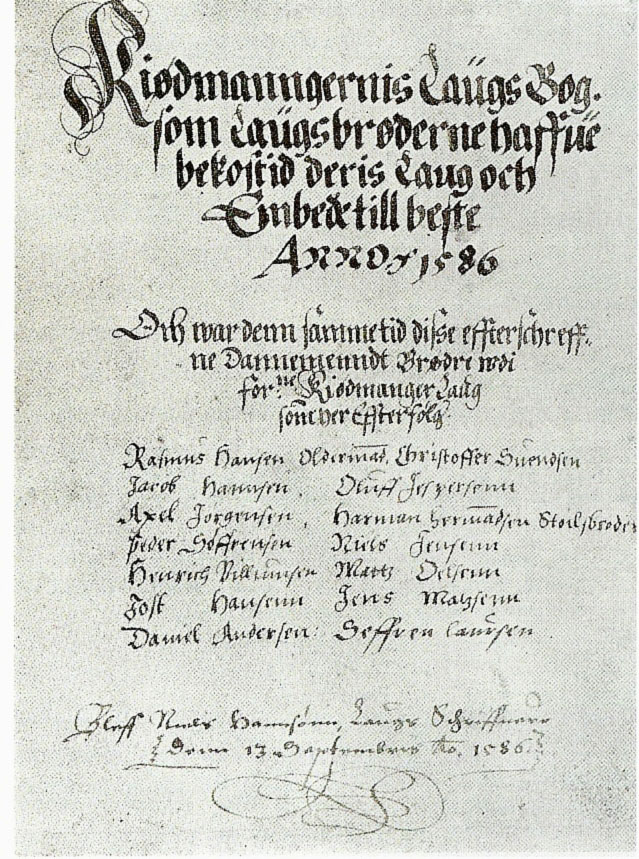 Kiødmanngernis Laugs Bog.
som Laugsbrøderne haffue
bekostid deris Laug och
Embede till beste
ANNO 1586
Och war denn sammetid disse effterschreff-
ne Dannemenndt Brødre wdi
for:ne Kiødmanger Laug
som her Effterfølg:
Rasmus Hansen Oldermad. Christoffer Suendsen
Jacob Hannsen. Oluff Jespersenn
Axel Jørgensen, Harman Hermadsen Stoilsbroder
Peder Søffrensen Niels Jensenn
Henrich Villumsen Mattz Oelsenn
Jost Hansenn Jens Matzsenn
Daniel Andersen: Seffren Laursen
Niels Hannsønn, Laugs Schriffuere
Denn 13 Septembris Ao. 1586